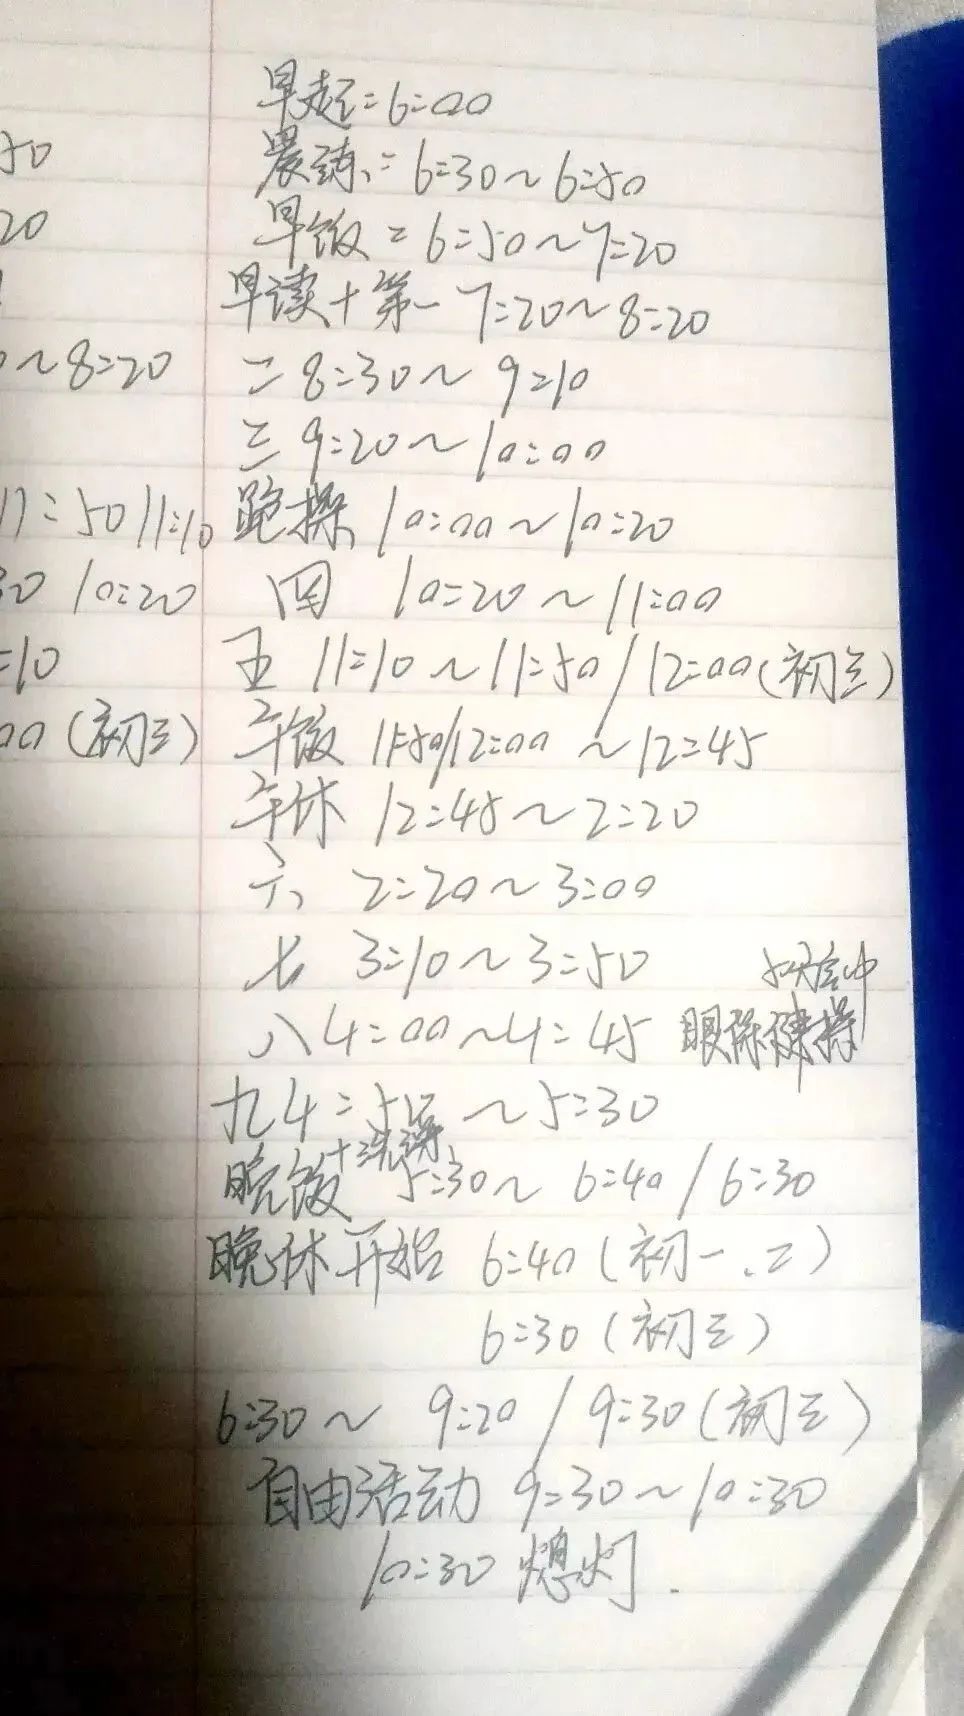 50
20
~8:20
11:50 11:10
30 10:20
:10
00(初三)
早起:6:00
晨练:6:30~6:50
早饭:6:50~7:20
早读+第一 7:20~8:20
二 8:30~9:10
三 9:20~10:00
跑操 10:00~10:20
四 10:20~11:00
五 11:10~11:50/12:00(初三)
午饭 11:50/12:00~12:45
午休 12:45~2:20
六 2:20~3:00
七 3:10~3:50
八 4:00~4:45 眼保健操
九 4:50~5:30
晚饭+洗澡 5:30~6:40/6:30
晚休开始 6:40(初一、二)
6:30(初三)
6:30~9:20/9:30(初三)
自由活动 9:30~10:30
10:30 熄灯.